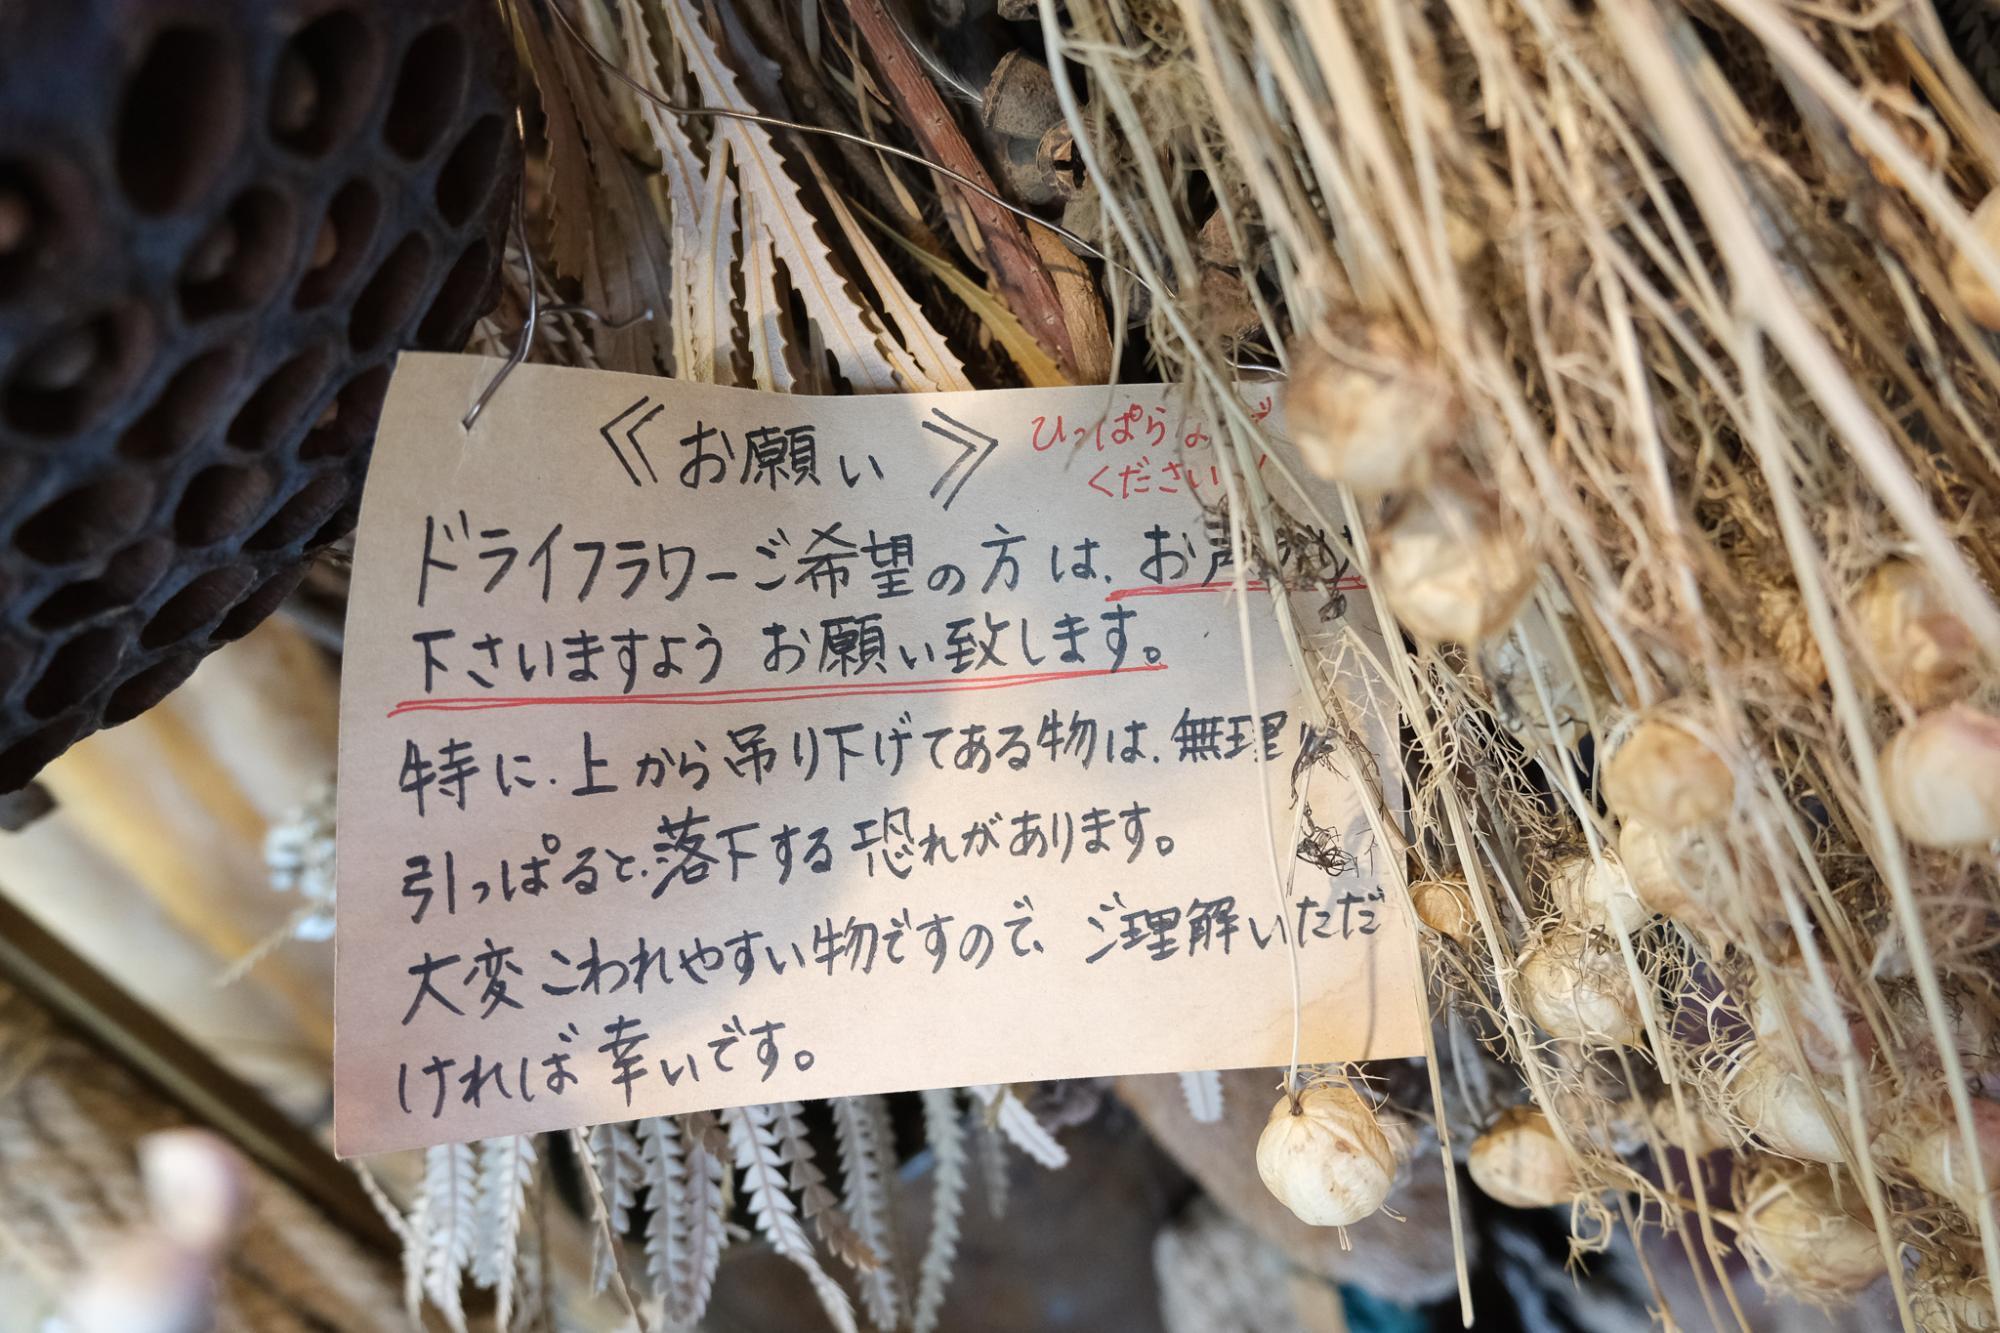 《お願い》
ひっぱらないで
ください!
ドライフラワーご希望の方は、お声かけ
下さいますよう お願い致します。
特に、上から吊り下げてある物は、無理に
引っぱると、落下する恐れがあります。
大変こわれやすい物ですので、ご理解いただ
ければ幸いです。